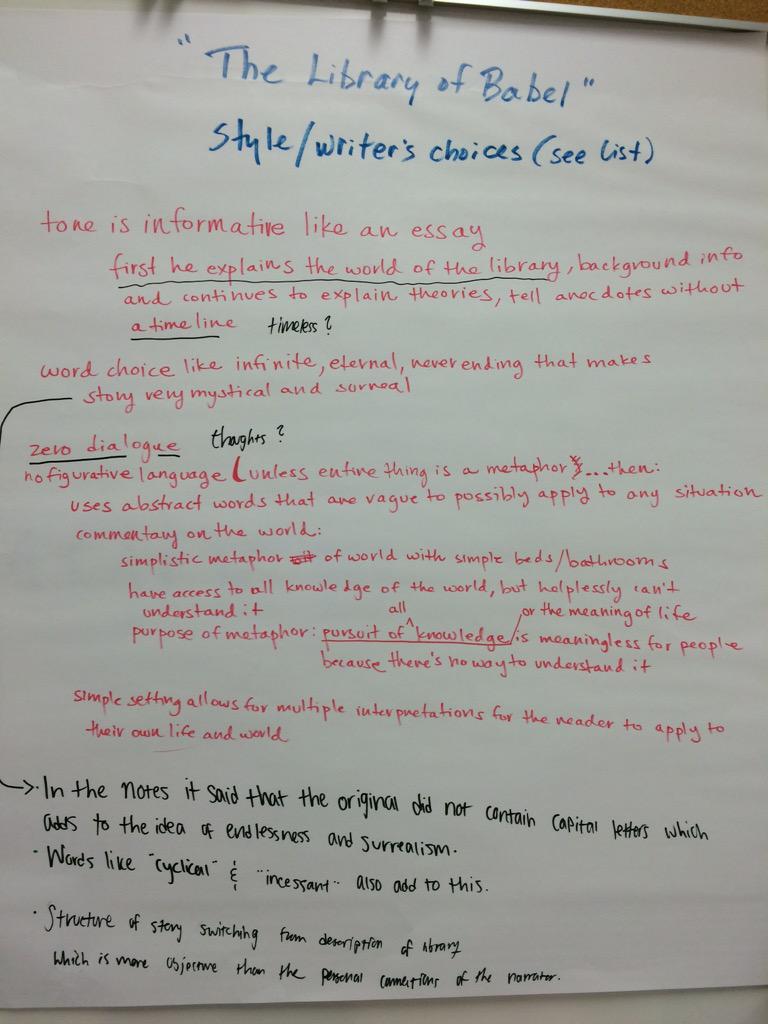 "The Library of Babel"
Style/writer's choices (see list)
tone is informative like an essay
first he explains the world of the library, background info
and continues to explain theories, tell anecdotes without
a timeline timeless?
word choice like infinite, eternal, never ending that makes
story very mystical and surreal
zero dialogue thoughts?
no figurative language (unless entire thing is a metaphor)...then:
uses abstract words that are vague to possibly apply to any situation
commentary on the world:
simplistic metaphor of world with simple beds/bathrooms
have access to all knowledge of the world, but helplessly can't
understand it
all or the meaning of life
purpose of metaphor: pursuit of ^ knowledge / is meaningless for people
because there's no way to understand it
simple setting allows for multiple interpretations for the reader to apply to
their own life and world
→· In the notes it said that the original did not contain capital letters which
adds to the idea of endlessness and surrealism.
· Words like "cyclical" & "incessant" also add to this.
· Structure of story switching from description of library
which is more objective than the personal connections of the narrator.